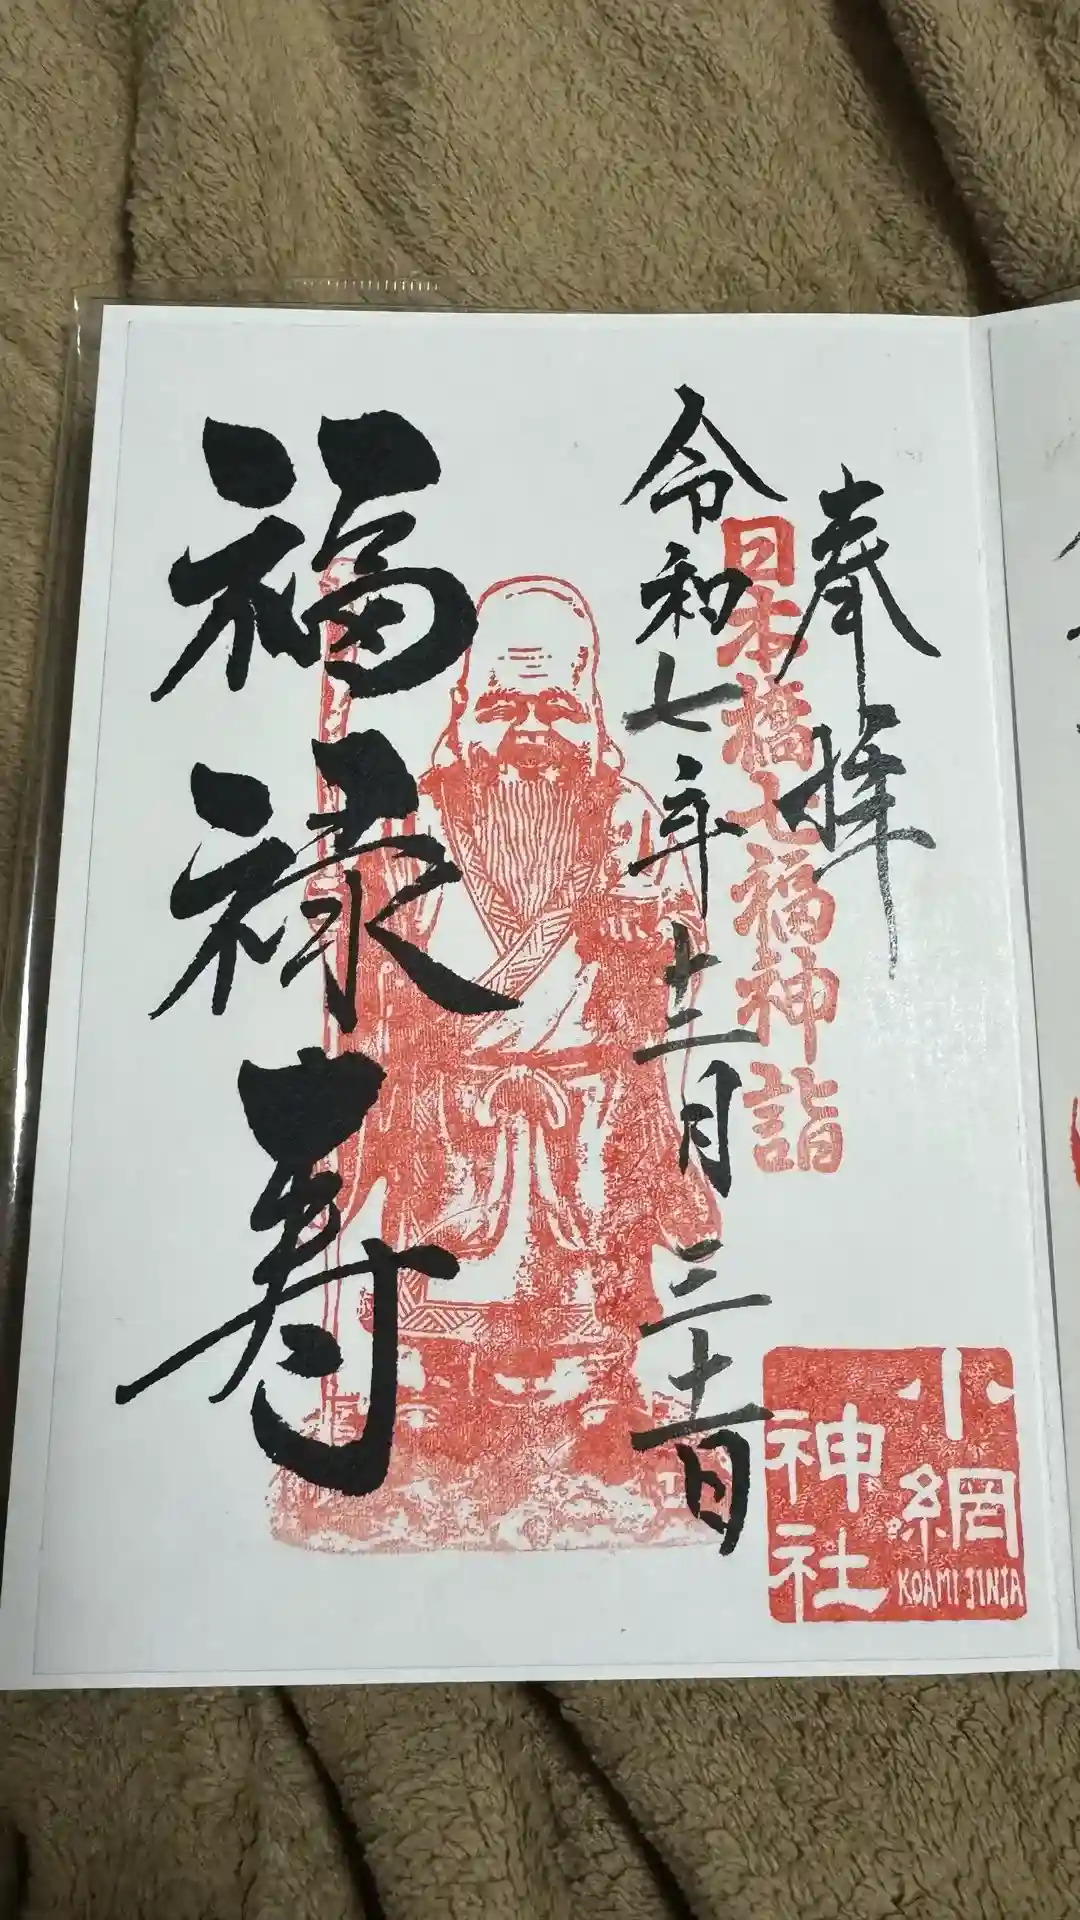 奉拝
日本橋七福神詣
令和七年十二月三十一日
福禄寿
小網
神社
KOAMI JINJA